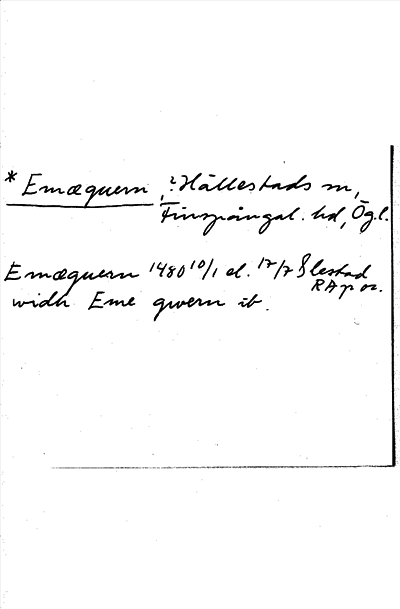 * Emæquern, ?Hällestads sn,
Finspångal. hd, Ögl.
Emæquern 1480 10/1 el. 17/7 Ølestad
RAp or.
widh Eme qwern ib.